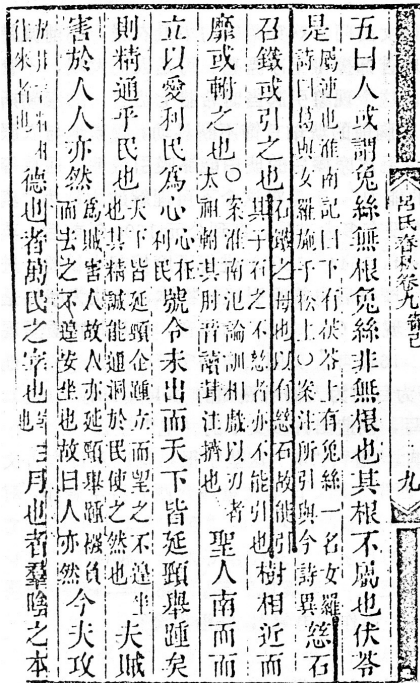 呂氏春秋卷九 審己 九
五曰人或謂兔絲無根兔絲非無根也其根不屬也伏苓
是屬連也淮南記曰下有伏苓上有兔絲一名女羅詩曰蔦與女羅施于松上○案注所引與今詩異慈石
召鐵或引之也石鐵之母也以有慈石故能引其子石之不慈者亦不能引也樹相近而
靡或軵之也○案淮南氾論訓相戲以刃者太祖軵其肘音讀茸注擠也聖人南面而
立以愛利民爲心心在利民號令未出而天下皆延頸舉踵矣
則精通乎民也天下皆延頸企踵立而望之不遑坐也其精誠能通洞於民使之然也夫賊
害於人人亦然爲賊害人故人亦延頸舉踵襁負而去之不遑安坐也故曰人亦然今夫攻
於此言精相往來者也德也者萬民之宰也宰主也月也者羣陰之本